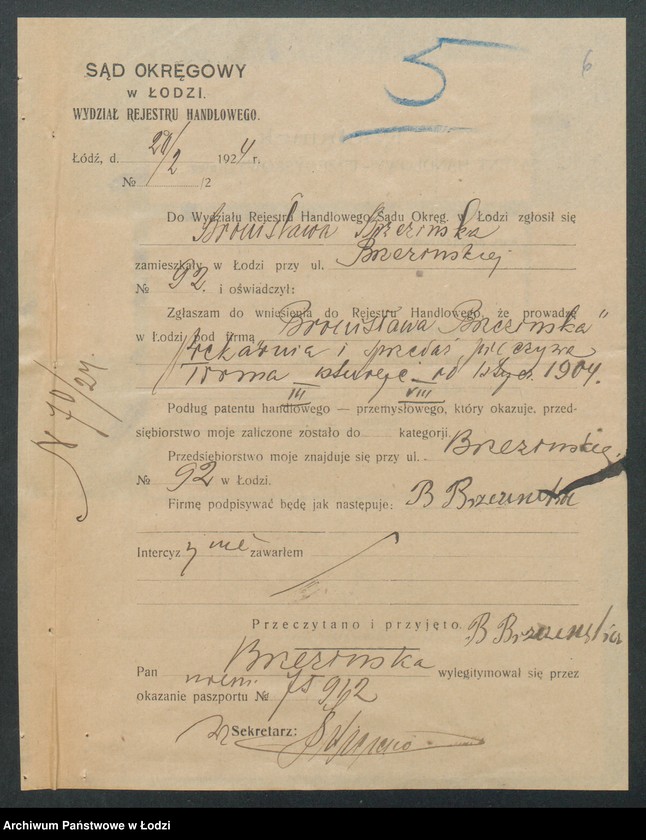 5
6
SĄD OKRĘGOWY
w ŁODZI.
WYDZIAŁ REJESTRU HANDLOWEGO.
Łódź, d. 20/2 1924 r.
№ /2
Do Wydziału Rejestru Handlowego Sądu Okręg. w Łodzi zgłosił się
Bronisława Brzezińska
zamieszkały w Łodzi przy ul. Brzezińskiej
№ 92. i oświadczył:
Zgłaszam do wniesienia do Rejestru Handlowego, że prowadzę
w Łodzi pod firmą Bronisława Brzezińska"
piekarnia i sprzedaż pieczywa
Firma istnieje od 1904.
III VIII
Podług patentu handlowego — przemysłowego, który okazuje, przed-
siębiorstwo moje zaliczone zostało do kategorji.
Przedsiębiorstwo moje znajduje się przy ul. Brzezińskiej
№ 92 w Łodzi.
Firmę podpisywać będę jak następuje: B Brzezinska
N 70/24.
Intercyzy nie zawarłem
Przeczytano i przyjęto. B Brzezinska
Pan Brzezinska wylegitymował się przez
okazanie paszportu №
Sekretarz:
Archiwum Państwowe w Łodzi